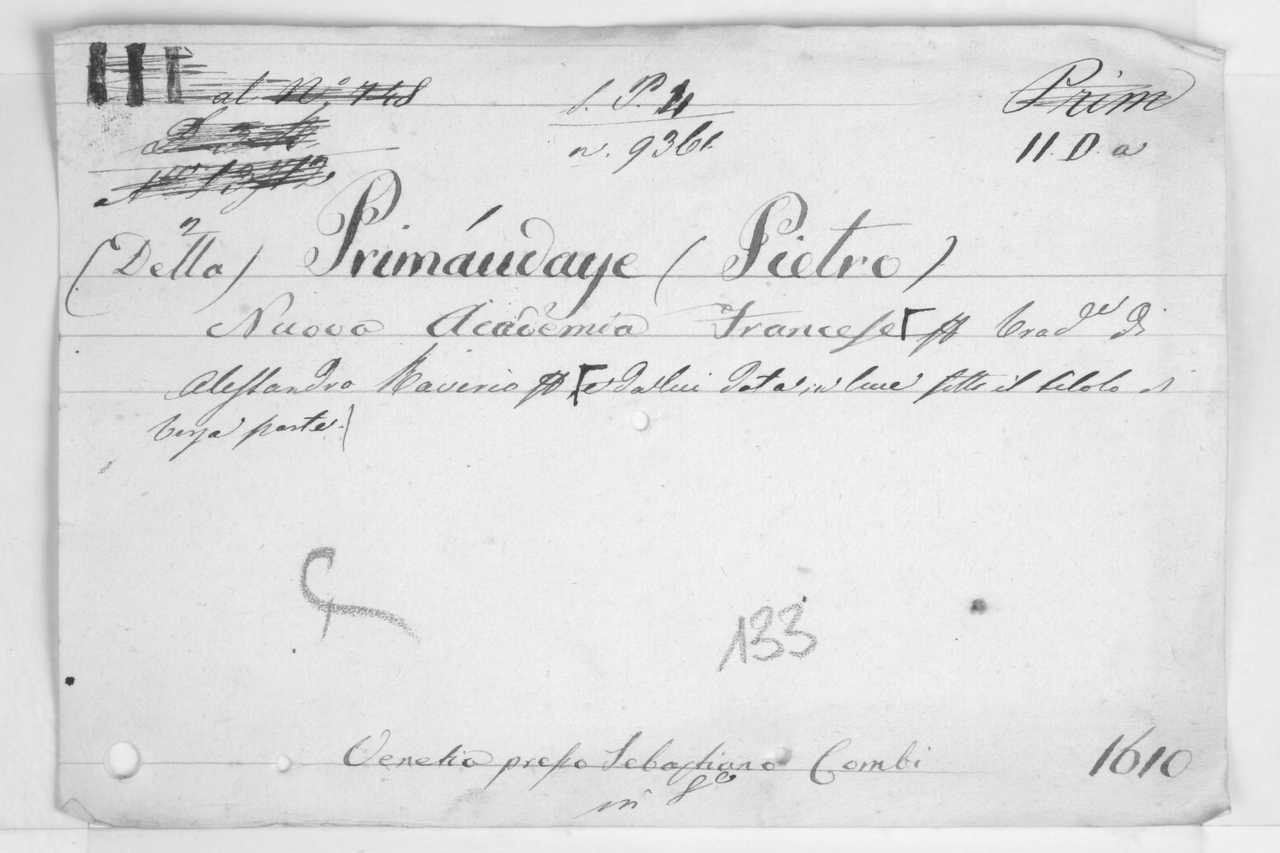 III al N.º 748
S. P. 4
n. 9361
Prim
II. D. a
(Della) Primáudaye (Pietro)
Nuova Academia Francese trad.e di
Alessandro Raverio e da lui data in luce sotto il titolo di
terza parte.
133
Venetia presso Sebastiano Combi 1610
in 8º